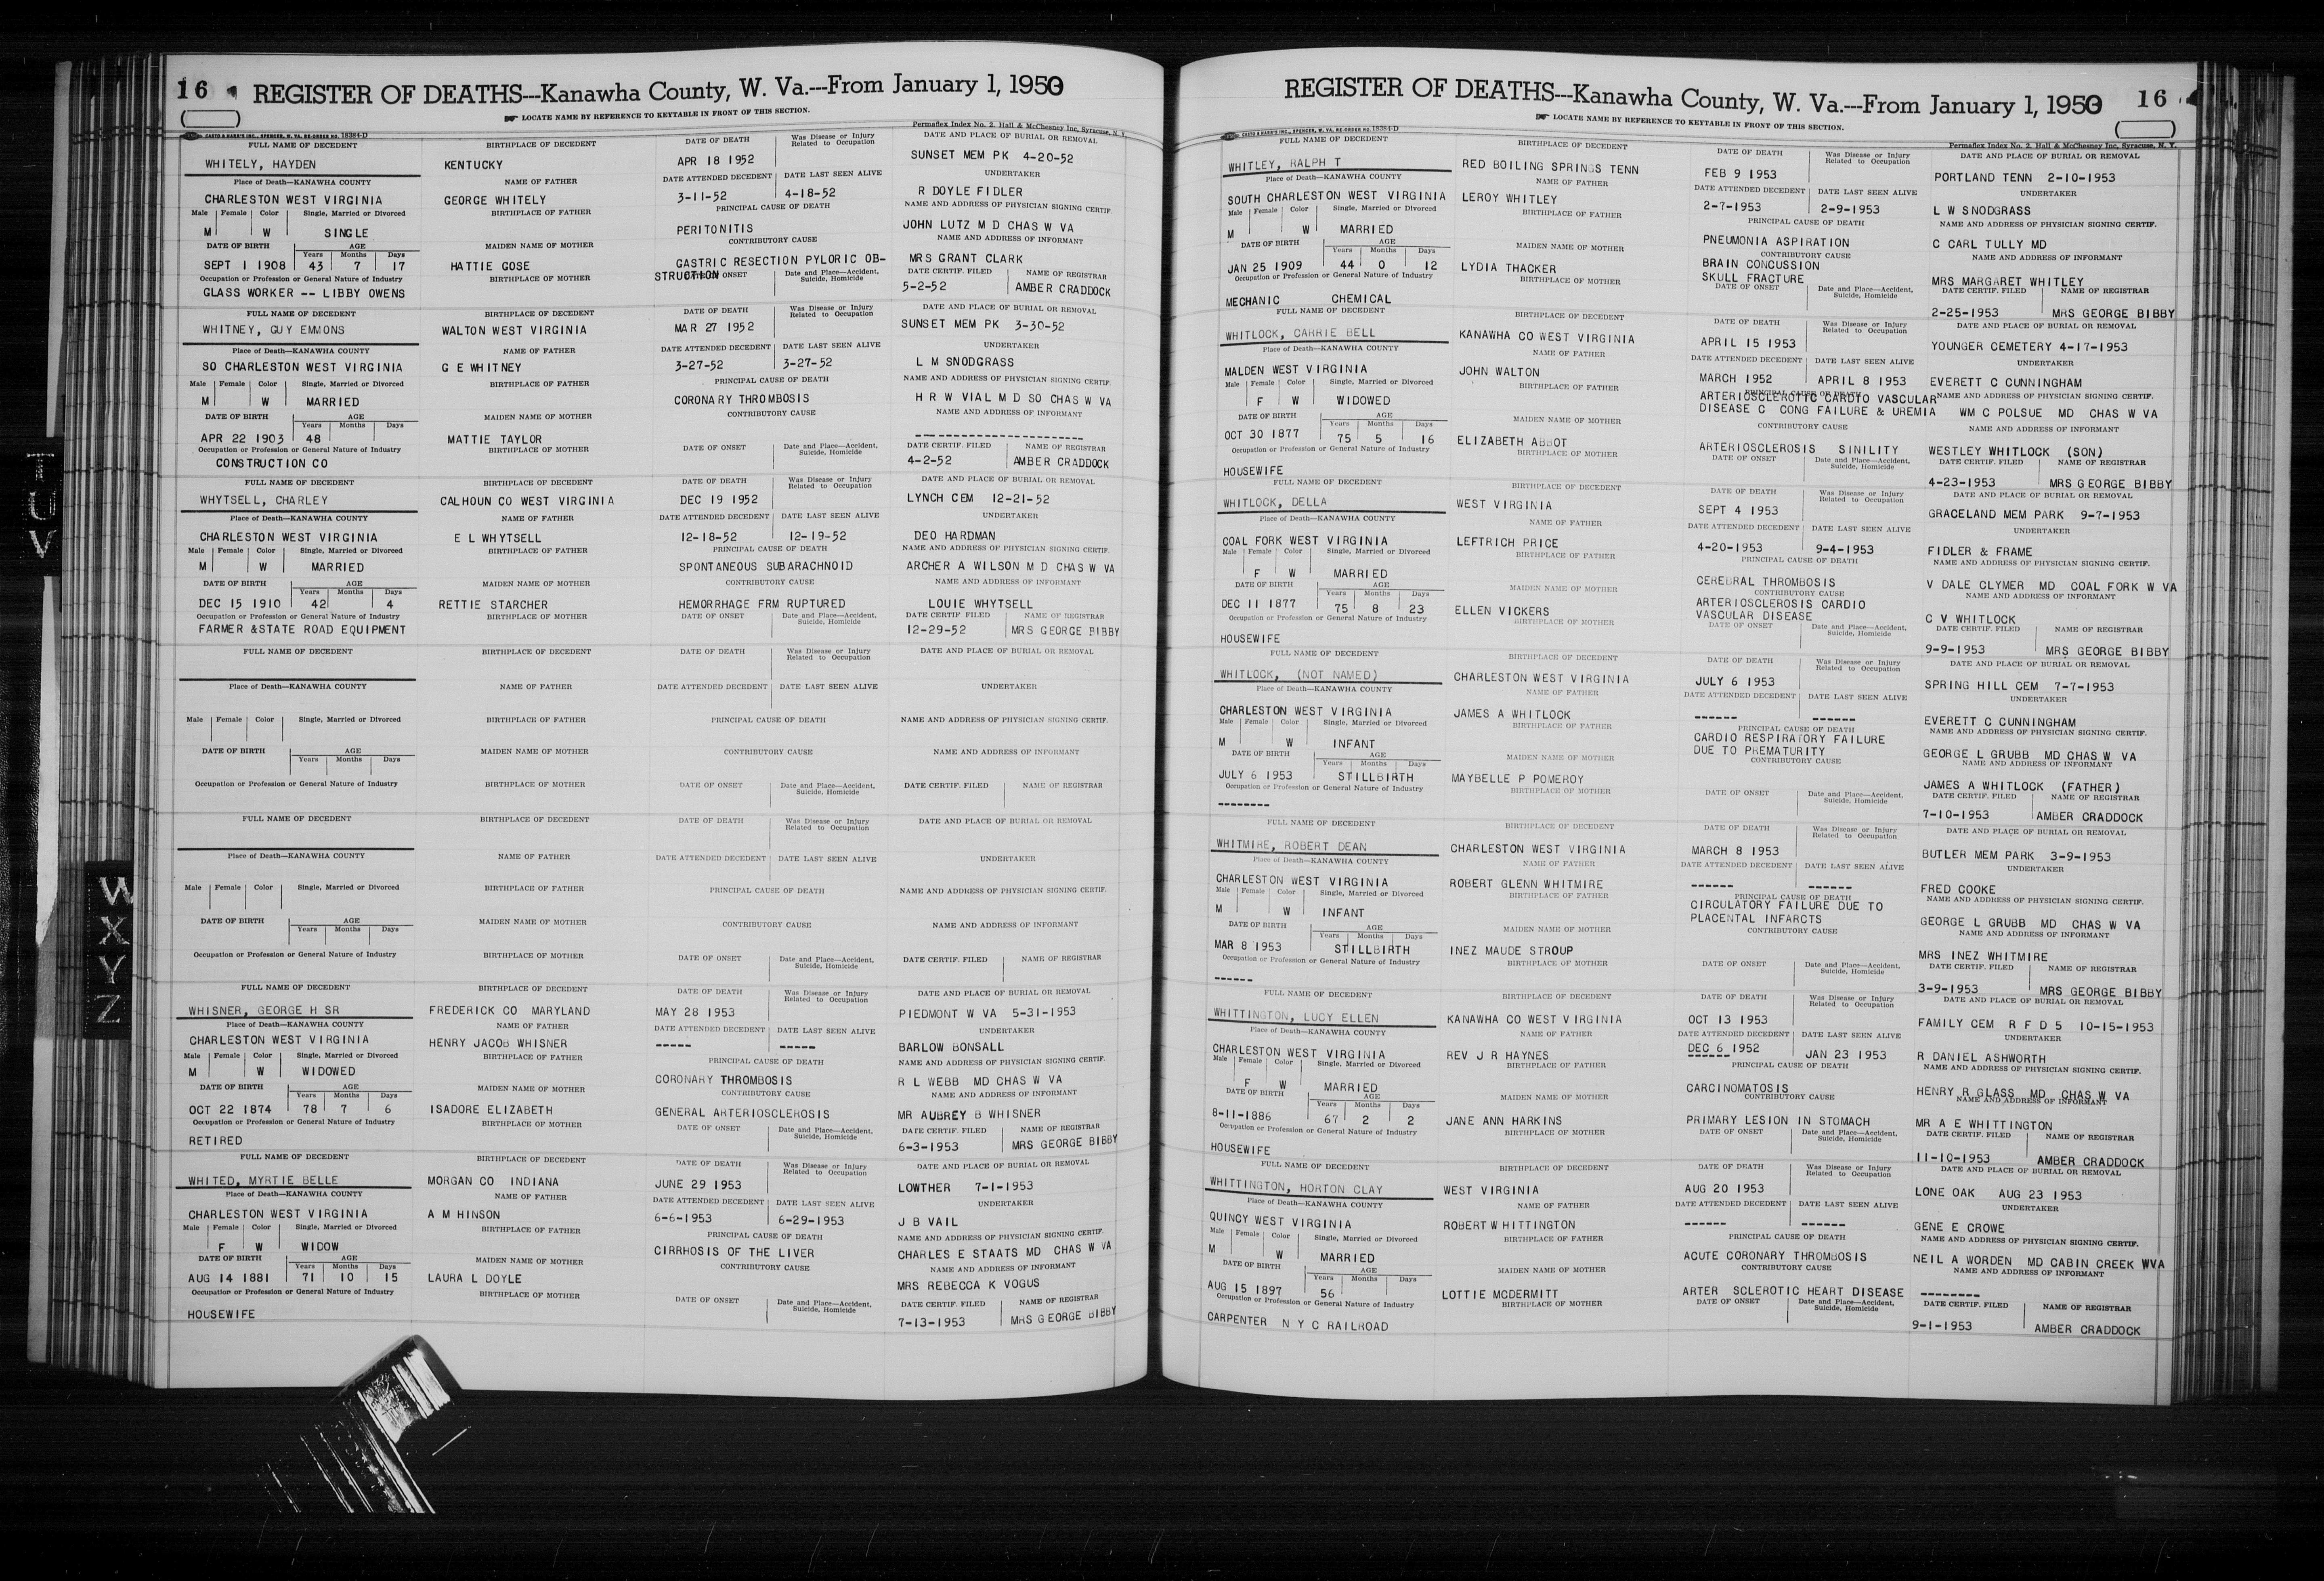 16 REGISTER OF DEATHS---Kanawha County, W. Va.---From January 1, 1950
LOCATE NAME BY REFERENCE TO KEYTABLE IN FRONT OF THIS SECTION.
CASTO & HARRIS INC., SPENCER, W. VA. RE-ORDER NO. 18384-D Permaflex Index No. 2. Hall & McChesney Inc, Syracuse, N. Y.
FULL NAME OF DECEDENT BIRTHPLACE OF DECEDENT DATE OF DEATH Was Disease or Injury Related to Occupation DATE AND PLACE OF BURIAL OR REMOVAL
WHITELY, HAYDEN KENTUCKY APR 18 1952 SUNSET MEM PK 4-20-52
Place of Death—KANAWHA COUNTY NAME OF FATHER DATE ATTENDED DECEDENT DATE LAST SEEN ALIVE UNDERTAKER
CHARLESTON WEST VIRGINIA GEORGE WHITELY 3-11-52 4-18-52 R DOYLE FIDLER
Male Female Color Single, Married or Divorced BIRTHPLACE OF FATHER PRINCIPAL CAUSE OF DEATH NAME AND ADDRESS OF PHYSICIAN SIGNING CERTIF.
M W SINGLE PERITONITIS JOHN LUTZ M D CHAS W VA
DATE OF BIRTH AGE Years Months Days MAIDEN NAME OF MOTHER CONTRIBUTORY CAUSE NAME AND ADDRESS OF INFORMANT
SEPT 1 1908 43 7 17 HATTIE GOSE GASTRIC RESECTION PYLORIC OB- MRS GRANT CLARK
STRUCTION
Occupation or Profession or General Nature of Industry BIRTHPLACE OF MOTHER DATE OF ONSET Date and Place—Accident, Suicide, Homicide DATE CERTIF. FILED NAME OF REGISTRAR
GLASS WORKER -- LIBBY OWENS 5-2-52 AMBER CRADDOCK
FULL NAME OF DECEDENT BIRTHPLACE OF DECEDENT DATE OF DEATH Was Disease or Injury Related to Occupation DATE AND PLACE OF BURIAL OR REMOVAL
WHITNEY, GUY EMMONS WALTON WEST VIRGINIA MAR 27 1952 SUNSET MEM PK 3-30-52
Place of Death—KANAWHA COUNTY NAME OF FATHER DATE ATTENDED DECEDENT DATE LAST SEEN ALIVE UNDERTAKER
SO CHARLESTON WEST VIRGINIA G E WHITNEY 3-27-52 3-27-52 L M SNODGRASS
Male Female Color Single, Married or Divorced BIRTHPLACE OF FATHER PRINCIPAL CAUSE OF DEATH NAME AND ADDRESS OF PHYSICIAN SIGNING CERTIF.
M W MARRIED CORONARY THROMBOSIS H R W VIAL M D SO CHAS W VA
DATE OF BIRTH AGE Years Months Days MAIDEN NAME OF MOTHER CONTRIBUTORY CAUSE NAME AND ADDRESS OF INFORMANT
APR 22 1903 48 MATTIE TAYLOR --------------------
Occupation or Profession or General Nature of Industry BIRTHPLACE OF MOTHER DATE OF ONSET Date and Place—Accident, Suicide, Homicide DATE CERTIF. FILED NAME OF REGISTRAR
CONSTRUCTION CO 4-2-52 AMBER CRADDOCK
FULL NAME OF DECEDENT BIRTHPLACE OF DECEDENT DATE OF DEATH Was Disease or Injury Related to Occupation DATE AND PLACE OF BURIAL OR REMOVAL
WHYTSELL, CHARLEY CALHOUN CO WEST VIRGINIA DEC 19 1952 LYNCH CEM 12-21-52
Place of Death—KANAWHA COUNTY NAME OF FATHER DATE ATTENDED DECEDENT DATE LAST SEEN ALIVE UNDERTAKER
CHARLESTON WEST VIRGINIA E L WHYTSELL 12-18-52 12-19-52 DEO HARDMAN
Male Female Color Single, Married or Divorced BIRTHPLACE OF FATHER PRINCIPAL CAUSE OF DEATH NAME AND ADDRESS OF PHYSICIAN SIGNING CERTIF.
M W MARRIED SPONTANEOUS SUBARACHNOID ARCHER A WILSON M D CHAS W VA
DATE OF BIRTH AGE Years Months Days MAIDEN NAME OF MOTHER CONTRIBUTORY CAUSE NAME AND ADDRESS OF INFORMANT
DEC 15 1910 42 4 RETTIE STARCHER HEMORRHAGE FRM RUPTURED LOUIE WHYTSELL
Occupation or Profession or General Nature of Industry BIRTHPLACE OF MOTHER DATE OF ONSET Date and Place—Accident, Suicide, Homicide DATE CERTIF FILED NAME OF REGISTRAR
FARMER &STATE ROAD EQUIPMENT 12-29-52 MRS GEORGE BIBBY
FULL NAME OF DECEDENT BIRTHPLACE OF DECEDENT DATE OF DEATH Was Disease or Injury Related to Occupation DATE AND PLACE OF BURIAL OR REMOVAL
Place of Death—KANAWHA COUNTY NAME OF FATHER DATE ATTENDED DECEDENT DATE LAST SEEN ALIVE UNDERTAKER
Male Female Color Single, Married or Divorced BIRTHPLACE OF FATHER PRINCIPAL CAUSE OF DEATH NAME AND ADDRESS OF PHYSICIAN SIGNING CERTIF.
DATE OF BIRTH AGE Years Months Days MAIDEN NAME OF MOTHER CONTRIBUTORY CAUSE NAME AND ADDRESS OF INFORMANT
Occupation or Profession or General Nature of Industry BIRTHPLACE OF MOTHER DATE OF ONSET Date and Place—Accident, Suicide, Homicide DATE CERTIF. FILED NAME OF REGISTRAR
FULL NAME OF DECEDENT BIRTHPLACE OF DECEDENT DATE OF DEATH Was Disease or Injury Related to Occupation DATE AND PLACE OF BURIAL OR REMOVAL
Place of Death—KANAWHA COUNTY NAME OF FATHER DATE ATTENDED DECEDENT DATE LAST SEEN ALIVE UNDERTAKER
Male Female Color Single, Married or Divorced BIRTHPLACE OF FATHER PRINCIPAL CAUSE OF DEATH NAME AND ADDRESS OF PHYSICIAN SIGNING CERTIF.
DATE OF BIRTH AGE Years Months Days MAIDEN NAME OF MOTHER CONTRIBUTORY CAUSE NAME AND ADDRESS OF INFORMANT
Occupation or Profession or General Nature of Industry BIRTHPLACE OF MOTHER DATE OF ONSET Date and Place—Accident, Suicide, Homicide DATE CERTIF. FILED NAME OF REGISTRAR
FULL NAME OF DECEDENT BIRTHPLACE OF DECEDENT DATE OF DEATH Was Disease or Injury Related to Occupation DATE AND PLACE OF BURIAL OR REMOVAL
WHISNER, GEORGE H SR FREDERICK CO MARYLAND MAY 28 1953 PIEDMONT W VA 5-31-1953
Place of Death—KANAWHA COUNTY NAME OF FATHER DATE ATTENDED DECEDENT DATE LAST SEEN ALIVE UNDERTAKER
CHARLESTON WEST VIRGINIA HENRY JACOB WHISNER ----- ----- BARLOW BONSALL
Male Female Color Single, Married or Divorced BIRTHPLACE OF FATHER PRINCIPAL CAUSE OF DEATH NAME AND ADDRESS OF PHYSICIAN SIGNING CERTIF.
M W WIDOWED CORONARY THROMBOSIS R L WEBB MD CHAS W VA
DATE OF BIRTH AGE Years Months Days MAIDEN NAME OF MOTHER CONTRIBUTORY CAUSE NAME AND ADDRESS OF INFORMANT
OCT 22 1874 78 7 6 ISADORE ELIZABETH GENERAL ARTERIOSCLEROSIS MR AUBREY B WHISNER
Occupation or Profession or General Nature of Industry BIRTHPLACE OF MOTHER DATE OF ONSET Date and Place—Accident, Suicide, Homicide DATE CERTIF. FILED NAME OF REGISTRAR
RETIRED 6-3-1953 MRS GEORGE BIBBY
FULL NAME OF DECEDENT BIRTHPLACE OF DECEDENT DATE OF DEATH Was Disease or Injury Related to Occupation DATE AND PLACE OF BURIAL OR REMOVAL
WHITED, MYRTIE BELLE MORGAN CO INDIANA JUNE 29 1953 LOWTHER 7-1-1953
Place of Death—KANAWHA COUNTY NAME OF FATHER DATE ATTENDED DECEDENT DATE LAST SEEN ALIVE UNDERTAKER
CHARLESTON WEST VIRGINIA A M HINSON 6-6-1953 6-29-1953 J B VAIL
Male Female Color Single, Married or Divorced BIRTHPLACE OF FATHER PRINCIPAL CAUSE OF DEATH NAME AND ADDRESS OF PHYSICIAN SIGNING CERTIF.
F W WIDOW CIRRHOSIS OF THE LIVER CHARLES E STAATS MD CHAS W VA
DATE OF BIRTH AGE Years Months Days MAIDEN NAME OF MOTHER CONTRIBUTORY CAUSE NAME AND ADDRESS OF INFORMANT
AUG 14 1881 71 10 15 LAURA L DOYLE MRS REBECCA K VOGUS
Occupation or Profession or General Nature of Industry BIRTHPLACE OF MOTHER DATE OF ONSET Date and Place—Accident, Suicide, Homicide DATE CERTIF. FILED NAME OF REGISTRAR
HOUSEWIFE 7-13-1953 MRS GEORGE BIBBY
T
U
V
W
X
Y
Z
REGISTER OF DEATHS---Kanawha County, W. Va.---From January 1, 1950 16
LOCATE NAME BY REFERENCE TO KEYTABLE IN FRONT OF THIS SECTION.
CASTO & HARRIS INC., SPENCER, W. VA. RE-ORDER NO. 18384-D Permaflex Index No. 2. Hall & McChesney Inc, Syracuse, N. Y.
FULL NAME OF DECEDENT BIRTHPLACE OF DECEDENT DATE OF DEATH Was Disease or Injury Related to Occupation DATE AND PLACE OF BURIAL OR REMOVAL
WHITLEY, RALPH T RED BOILING SPRINGS TENN FEB 9 1953 PORTLAND TENN 2-10-1953
Place of Death—KANAWHA COUNTY NAME OF FATHER DATE ATTENDED DECEDENT DATE LAST SEEN ALIVE UNDERTAKER
SOUTH CHARLESTON WEST VIRGINIA LEROY WHITLEY 2-7-1953 2-9-1953 L W SNODGRASS
Male Female Color Single, Married or Divorced BIRTHPLACE OF FATHER PRINCIPAL CAUSE OF DEATH NAME AND ADDRESS OF PHYSICIAN SIGNING CERTIF.
M W MARRIED PNEUMONIA ASPIRATION C CARL TULLY MD
DATE OF BIRTH AGE Years Months Days MAIDEN NAME OF MOTHER CONTRIBUTORY CAUSE NAME AND ADDRESS OF INFORMANT
JAN 25 1909 44 0 12 LYDIA THACKER BRAIN CONCUSSION
SKULL FRACTURE MRS MARGARET WHITLEY
Occupation or Profession or General Nature of Industry BIRTHPLACE OF MOTHER DATE OF ONSET Date and Place—Accident, Suicide, Homicide DATE CERTIF. FILED NAME OF REGISTRAR
MECHANIC CHEMICAL 2-25-1953 MRS GEORGE BIBBY
FULL NAME OF DECEDENT BIRTHPLACE OF DECEDENT DATE OF DEATH Was Disease or Injury Related to Occupation DATE AND PLACE OF BURIAL OR REMOVAL
WHITLOCK, CARRIE BELL KANAWHA CO WEST VIRGINIA APRIL 15 1953 YOUNGER CEMETERY 4-17-1953
Place of Death—KANAWHA COUNTY NAME OF FATHER DATE ATTENDED DECEDENT DATE LAST SEEN ALIVE UNDERTAKER
MALDEN WEST VIRGINIA JOHN WALTON MARCH 1952 APRIL 8 1953 EVERETT C CUNNINGHAM
Male Female Color Single, Married or Divorced BIRTHPLACE OF FATHER PRINCIPAL CAUSE OF DEATH NAME AND ADDRESS OF PHYSICIAN SIGNING CERTIF.
F W WIDOWED ARTERIOSCLEROTIC CARDIO VASCULAR
DISEASE C CONG FAILURE & UREMIA WM C POLSUE MD CHAS W VA
DATE OF BIRTH AGE Years Months Days MAIDEN NAME OF MOTHER CONTRIBUTORY CAUSE NAME AND ADDRESS OF INFORMANT
OCT 30 1877 75 5 16 ELIZABETH ABBOT ARTERIOSCLEROSIS SINILITY WESTLEY WHITLOCK (SON)
Occupation or Profession or General Nature of Industry BIRTHPLACE OF MOTHER DATE OF ONSET Date and Place—Accident, Suicide, Homicide DATE CERTIF. FILED NAME OF REGISTRAR
HOUSEWIFE 4-23-1953 MRS GEORGE BIBBY
FULL NAME OF DECEDENT BIRTHPLACE OF DECEDENT DATE OF DEATH Was Disease or Injury Related to Occupation DATE AND PLACE OF BURIAL OR REMOVAL
WHITLOCK, DELLA WEST VIRGINIA SEPT 4 1953 GRACELAND MEM PARK 9-7-1953
Place of Death—KANAWHA COUNTY NAME OF FATHER DATE ATTENDED DECEDENT DATE LAST SEEN ALIVE UNDERTAKER
COAL FORK WEST VIRGINIA LEFTRICH PRICE 4-20-1953 9-4-1953 FIDLER & FRAME
Male Female Color Single, Married or Divorced BIRTHPLACE OF FATHER PRINCIPAL CAUSE OF DEATH NAME AND ADDRESS OF PHYSICIAN SIGNING CERTIF.
F W MARRIED CEREBRAL THROMBOSIS V DALE CLYMER MD COAL FORK W VA
DATE OF BIRTH AGE Years Months Days MAIDEN NAME OF MOTHER CONTRIBUTORY CAUSE NAME AND ADDRESS OF INFORMANT
DEC 11 1877 75 8 23 ELLEN VICKERS ARTERIOSCLEROSIS CARDIO
VASCULAR DISEASE C V WHITLOCK
Occupation or Profession or General Nature of Industry BIRTHPLACE OF MOTHER DATE OF ONSET Date and Place—Accident, Suicide, Homicide DATE CERTIF. FILED NAME OF REGISTRAR
HOUSEWIFE 9-9-1953 MRS GEORGE BIBBY
FULL NAME OF DECEDENT BIRTHPLACE OF DECEDENT DATE OF DEATH Was Disease or Injury Related to Occupation DATE AND PLACE OF BURIAL OR REMOVAL
WHITLOCK, (NOT NAMED) CHARLESTON WEST VIRGINIA JULY 6 1953 SPRING HILL CEM 7-7-1953
Place of Death—KANAWHA COUNTY NAME OF FATHER DATE ATTENDED DECEDENT DATE LAST SEEN ALIVE UNDERTAKER
CHARLESTON WEST VIRGINIA JAMES A WHITLOCK ------ ------ EVERETT C CUNNINGHAM
Male Female Color Single, Married or Divorced BIRTHPLACE OF FATHER PRINCIPAL CAUSE OF DEATH NAME AND ADDRESS OF PHYSICIAN SIGNING CERTIF.
M W INFANT CARDIO RESPIRATORY FAILURE
DUE TO PREMATURITY GEORGE L GRUBB MD CHAS W VA
DATE OF BIRTH AGE Years Months Days MAIDEN NAME OF MOTHER CONTRIBUTORY CAUSE NAME AND ADDRESS OF INFORMANT
JULY 6 1953 STILLBIRTH MAYBELLE P POMEROY JAMES A WHITLOCK (FATHER)
Occupation or Profession or General Nature of Industry BIRTHPLACE OF MOTHER DATE OF ONSET Date and Place—Accident, Suicide, Homicide DATE CERTIF. FILED NAME OF REGISTRAR
-------- 7-10-1953 AMBER CRADDOCK
FULL NAME OF DECEDENT BIRTHPLACE OF DECEDENT DATE OF DEATH Was Disease or Injury Related to Occupation DATE AND PLACE OF BURIAL OR REMOVAL
WHITMIRE, ROBERT DEAN CHARLESTON WEST VIRGINIA MARCH 8 1953 BUTLER MEM PARK 3-9-1953
Place of Death—KANAWHA COUNTY NAME OF FATHER DATE ATTENDED DECEDENT DATE LAST SEEN ALIVE UNDERTAKER
CHARLESTON WEST VIRGINIA ROBERT GLENN WHITMIRE ------ ------ FRED COOKE
Male Female Color Single, Married or Divorced BIRTHPLACE OF FATHER PRINCIPAL CAUSE OF DEATH NAME AND ADDRESS OF PHYSICIAN SIGNING CERTIF.
M W INFANT CIRCULATORY FAILURE DUE TO
PLACENTAL INFARCTS GEORGE L GRUBB MD CHAS W VA
DATE OF BIRTH AGE Years Months Days MAIDEN NAME OF MOTHER CONTRIBUTORY CAUSE NAME AND ADDRESS OF INFORMANT
MAR 8 1953 STILLBIRTH INEZ MAUDE STROUP MRS INEZ WHITMIRE
Occupation or Profession or General Nature of Industry BIRTHPLACE OF MOTHER DATE OF ONSET Date and Place—Accident, Suicide, Homicide DATE CERTIF. FILED NAME OF REGISTRAR
------ 3-9-1953 MRS GEORGE BIBBY
FULL NAME OF DECEDENT BIRTHPLACE OF DECEDENT DATE OF DEATH Was Disease or Injury Related to Occupation DATE AND PLACE OF BURIAL OR REMOVAL
WHITTINGTON, LUCY ELLEN KANAWHA CO WEST VIRGINIA OCT 13 1953 FAMILY CEM R F D 5 10-15-1953
Place of Death—KANAWHA COUNTY NAME OF FATHER DATE ATTENDED DECEDENT DATE LAST SEEN ALIVE UNDERTAKER
CHARLESTON WEST VIRGINIA REV J R HAYNES DEC 6 1952 ------ JAN 23 1953 R DANIEL ASHWORTH
Male Female Color Single, Married or Divorced BIRTHPLACE OF FATHER PRINCIPAL CAUSE OF DEATH NAME AND ADDRESS OF PHYSICIAN SIGNING CERTIF.
F W MARRIED CARCINOMATOSIS HENRY R GLASS MD CHAS W VA
DATE OF BIRTH AGE Years Months Days MAIDEN NAME OF MOTHER CONTRIBUTORY CAUSE NAME AND ADDRESS OF INFORMANT
8-11-1886 67 2 2 JANE ANN HARKINS PRIMARY LESION IN STOMACH MR A E WHITTINGTON
Occupation or Profession or General Nature of Industry BIRTHPLACE OF MOTHER DATE OF ONSET Date and Place—Accident, Suicide, Homicide DATE CERTIF. FILED NAME OF REGISTRAR
HOUSEWIFE 11-10-1953 AMBER CRADDOCK
FULL NAME OF DECEDENT BIRTHPLACE OF DECEDENT DATE OF DEATH Was Disease or Injury Related to Occupation DATE AND PLACE OF BURIAL OR REMOVAL
WHITTINGTON, HORTON CLAY WEST VIRGINIA AUG 20 1953 LONE OAK AUG 23 1953
Place of Death—KANAWHA COUNTY NAME OF FATHER DATE ATTENDED DECEDENT DATE LAST SEEN ALIVE UNDERTAKER
QUINCY WEST VIRGINIA ROBERT W HITTINGTON ------ ------ GENE E CROWE
Male Female Color Single, Married or Divorced BIRTHPLACE OF FATHER PRINCIPAL CAUSE OF DEATH NAME AND ADDRESS OF PHYSICIAN SIGNING CERTIF.
M W MARRIED ACUTE CORONARY THROMBOSIS NEIL A WORDEN MD CABIN CREEK WVA
DATE OF BIRTH AGE Years Months Days MAIDEN NAME OF MOTHER CONTRIBUTORY CAUSE NAME AND ADDRESS OF INFORMANT
AUG 15 1897 56 LOTTIE MCDERMITT ARTER SCLEROTIC HEART DISEASE --------
Occupation or Profession or General Nature of Industry BIRTHPLACE OF MOTHER DATE OF ONSET Date and Place—Accident, Suicide, Homicide DATE CERTIF. FILED NAME OF REGISTRAR
CARPENTER N Y C RAILROAD 9-1-1953 AMBER CRADDOCK